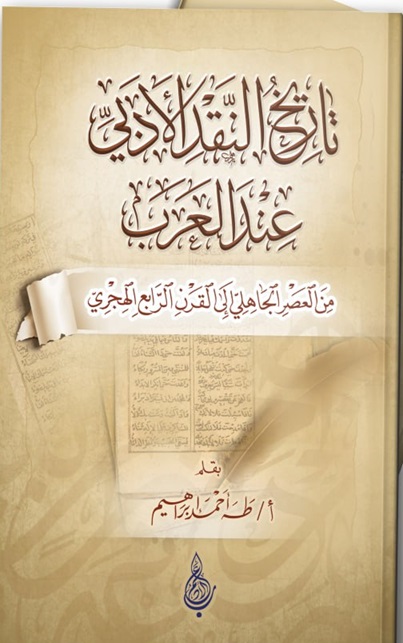 تاريخ النقد الأدبي
عند العرب
من العصر الجاهلي إلى القرن الرابع الهجري
بقلم
أ/ طه أحمد إبراهيم